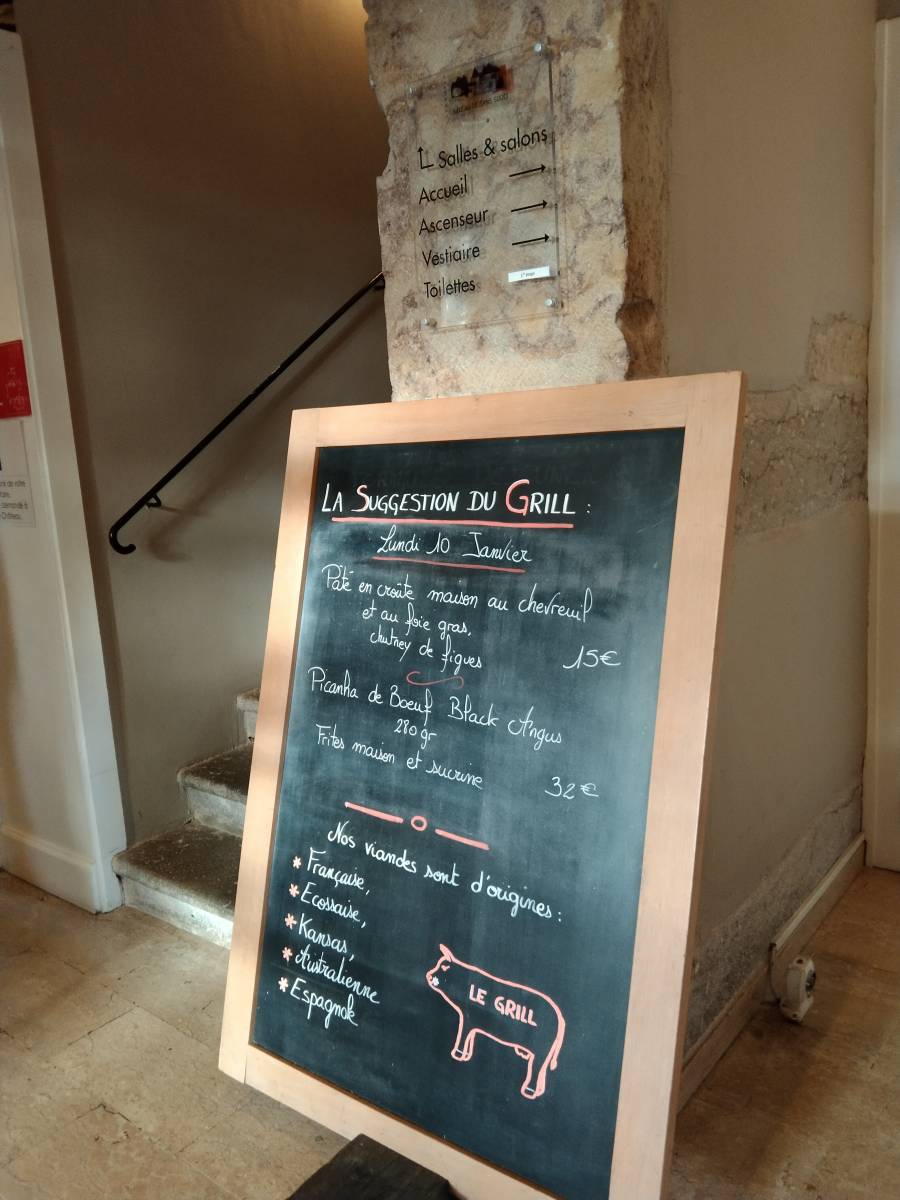 Salles & salons
Accueil
Ascenseur
Vestiaire
Toilettes
LA SUGGESTION DU GRILL :
Lundi 10 Janvier
Pâté en croûte maison au chevreuil
et au foie gras,
chutney de figues
15€
Picanha de Boeuf Black Angus
280 gr
Frites maison et sucrine
32€
Nos viandes sont d'origines :
* Française,
* Ecossaise,
* Kansas,
* Australienne
* Espagnole
LE GRILL